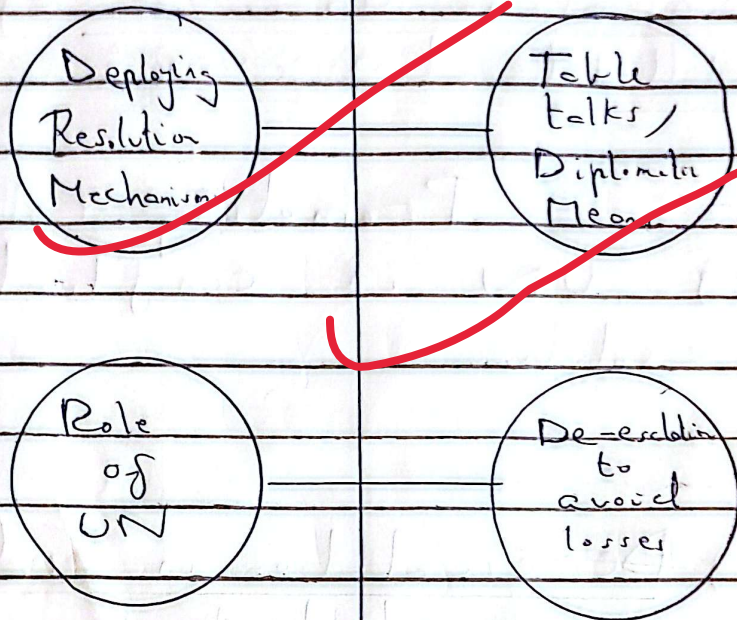 Deploying
Resolution
Mechanism
Table
talks,
Diplomatic
Means
Role
of
UN
De-escalation
to
avoid
losses